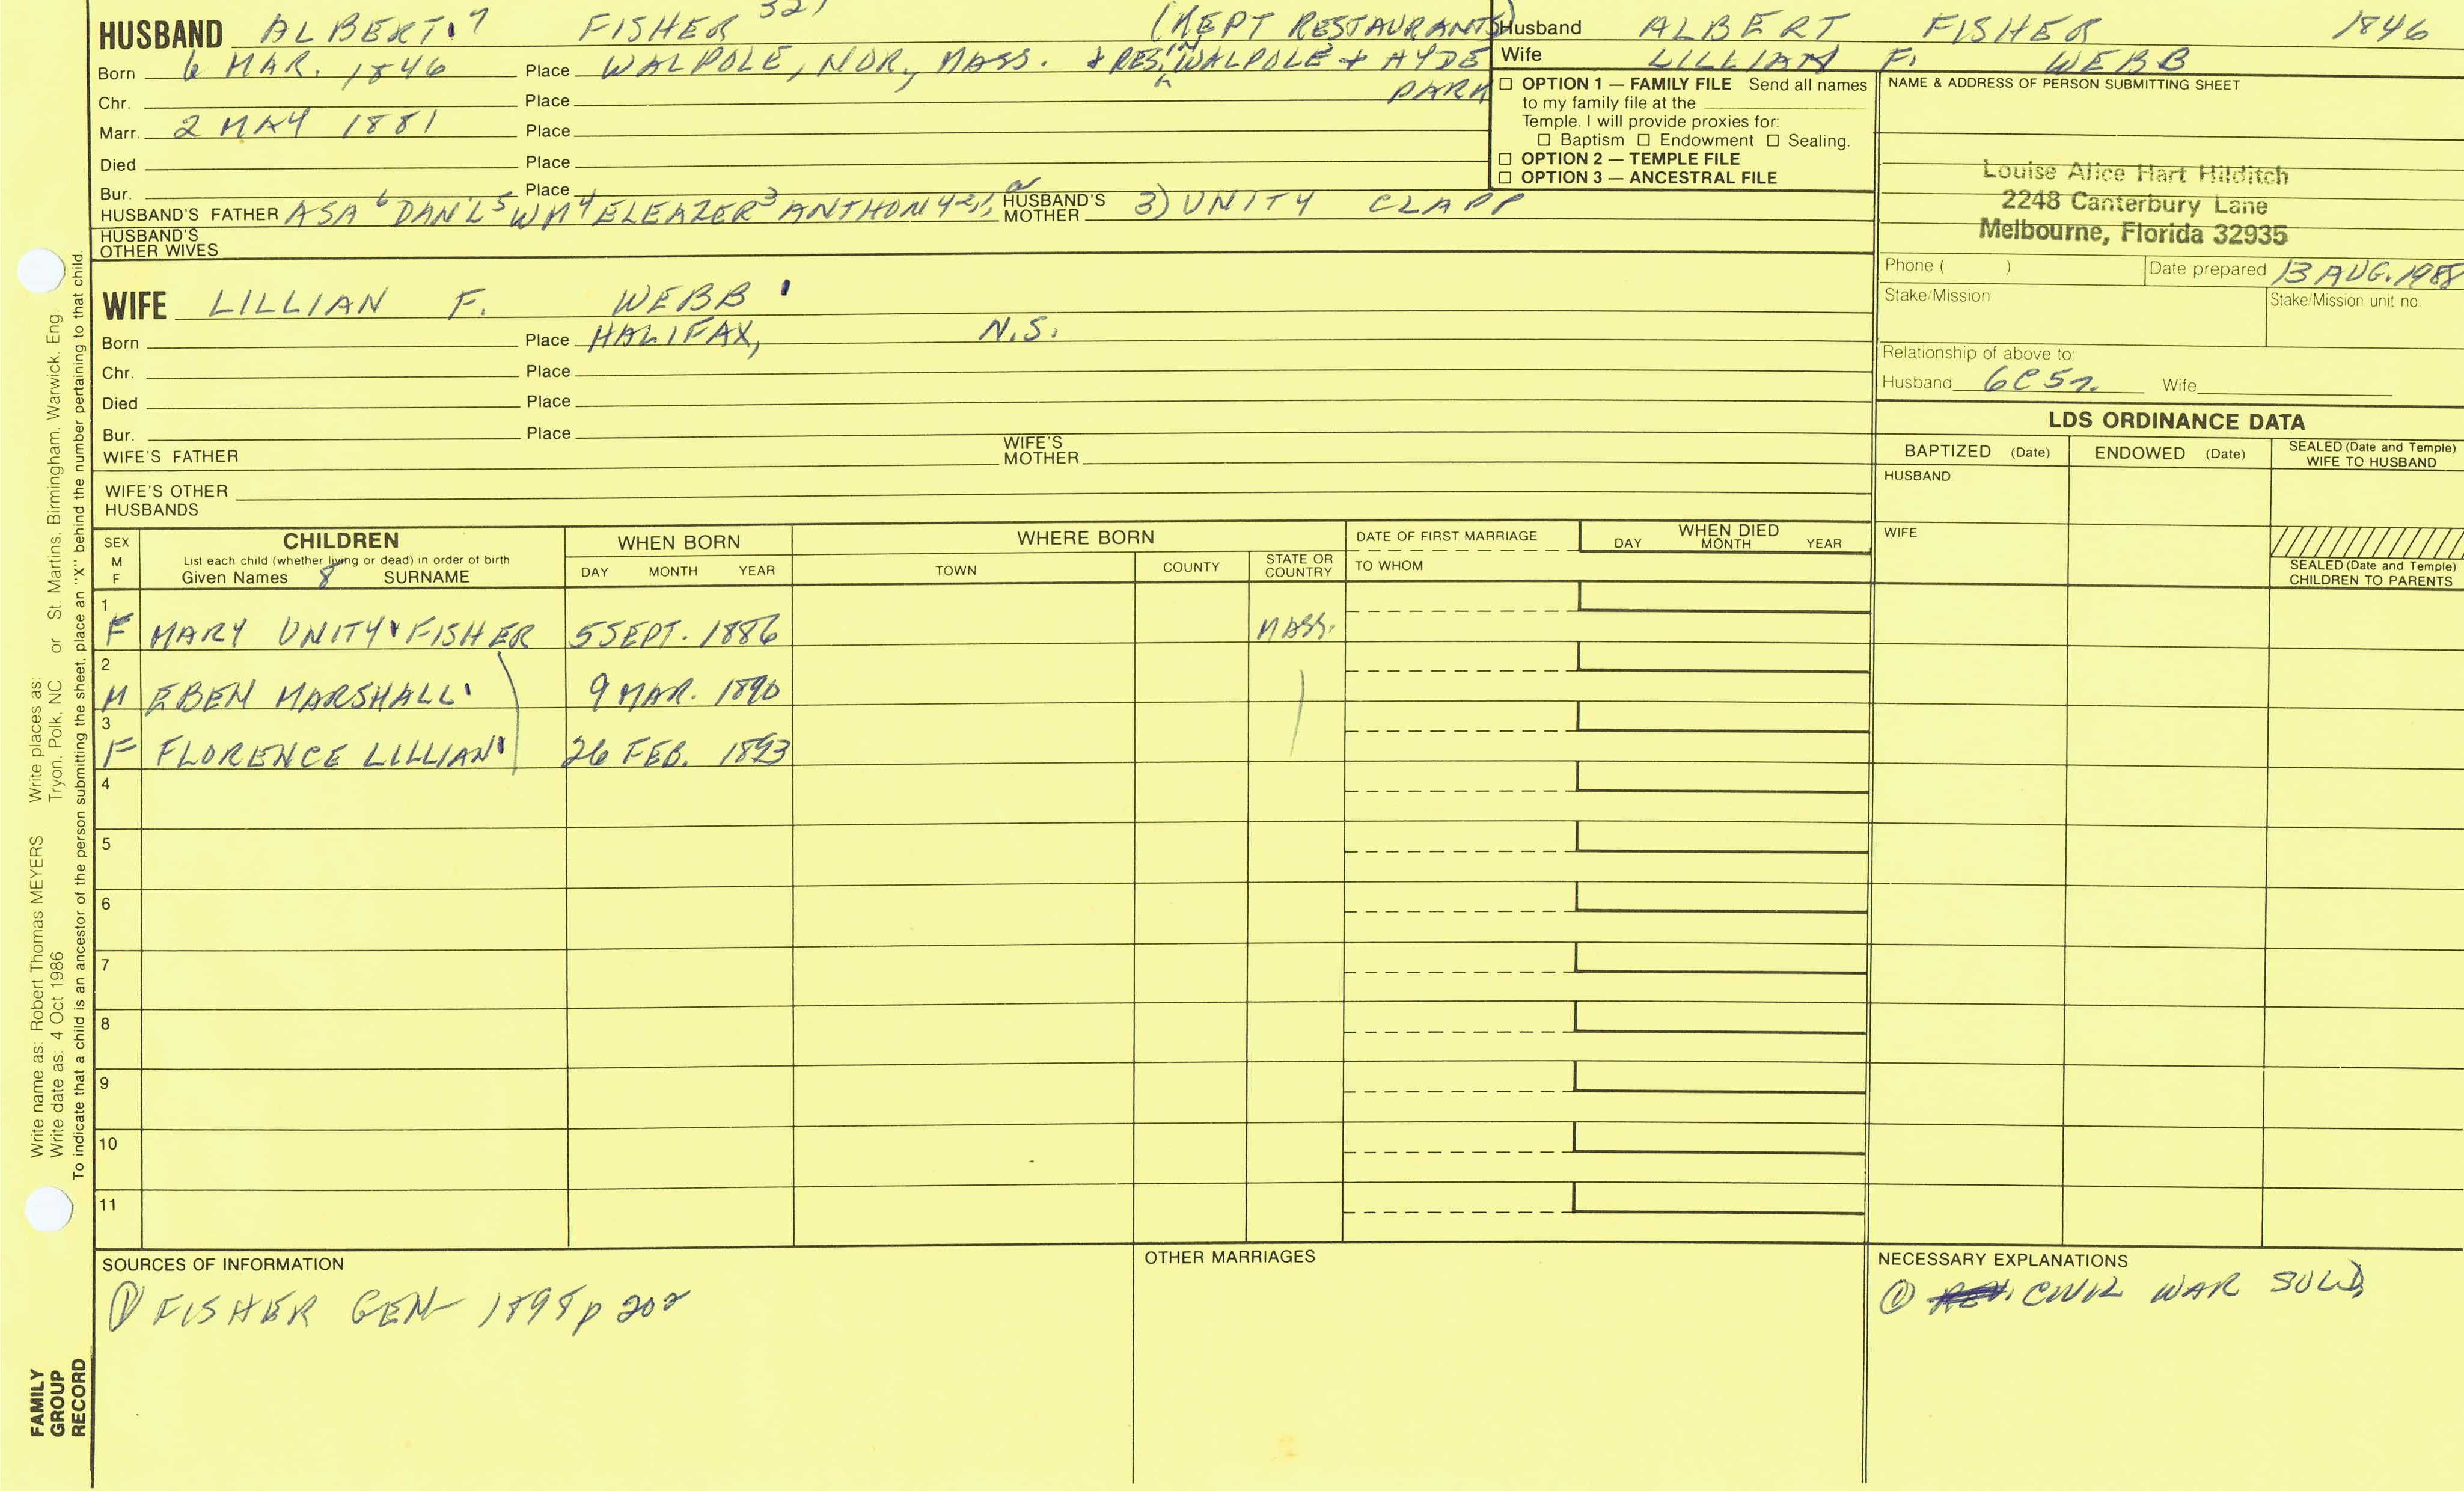 HUSBAND ALBERT 7 FISHER 321 (KEPT RESTAURANTS)
Born 6 MAR. 1846 Place WALPOLE, NOR, MASS. + RES. IN WALPOLE + HYDE
PARK
Chr. Place
Marr. 2 MAY 1881 Place
Died Place
Bur. Place
HUSBAND'S FATHER ASA 6 DAN'L 5 WM 4 ELEAZER 3 ANTHONY 2,1, HUSBAND'S MOTHER 3) UNITY CLAPP
HUSBAND'S
OTHER WIVES
Husband ALBERT FISHER 1846
Wife LILLIAN F. WEBB
☐ OPTION 1 — FAMILY FILE Send all names
to my family file at the
Temple. I will provide proxies for:
☐ Baptism ☐ Endowment ☐ Sealing.
☐ OPTION 2 — TEMPLE FILE
☐ OPTION 3 — ANCESTRAL FILE
NAME & ADDRESS OF PERSON SUBMITTING SHEET
Louise Alice Hart Hilditch
2248 Canterbury Lane
Melbourne, Florida 32935
Phone ( ) Date prepared 13 AUG. 1988
Stake/Mission Stake/Mission unit no.
Relationship of above to:
Husband 6C5R Wife
WIFE LILLIAN F. WEBB
Born Place HALIFAX, N.S.
Chr. Place
Died Place
Bur. Place
WIFE'S FATHER WIFE'S MOTHER
WIFE'S OTHER
HUSBANDS
LDS ORDINANCE DATA
BAPTIZED (Date) ENDOWED (Date) SEALED (Date and Temple)
WIFE TO HUSBAND
HUSBAND
WIFE
SEALED (Date and Temple)
CHILDREN TO PARENTS
SEX
M
F
CHILDREN
List each child (whether living or dead) in order of birth
Given Names 8 SURNAME
WHEN BORN
DAY MONTH YEAR
WHERE BORN
TOWN COUNTY STATE OR COUNTRY
DATE OF FIRST MARRIAGE
TO WHOM
WHEN DIED
DAY MONTH YEAR
1
F MARY UNITY FISHER 5 SEPT. 1886 MASS.
2
M EBEN MARSHALL 9 MAR. 1890
3
F FLORENCE LILLIAN 26 FEB. 1893
4
5
6
7
8
9
10
11
SOURCES OF INFORMATION
① FISHER GEN 1898 p 202
OTHER MARRIAGES
NECESSARY EXPLANATIONS
① CIVIL WAR SOLD
Write name as: Robert Thomas MEYERS Write places as: Tryon, Polk, NC or St Martins, Birmingham, Warwick, Eng
Write date as: 4 Oct 1986
To indicate that a child is an ancestor of the person submitting the sheet, place an "X" behind the number pertaining to that child.
FAMILY
GROUP
RECORD